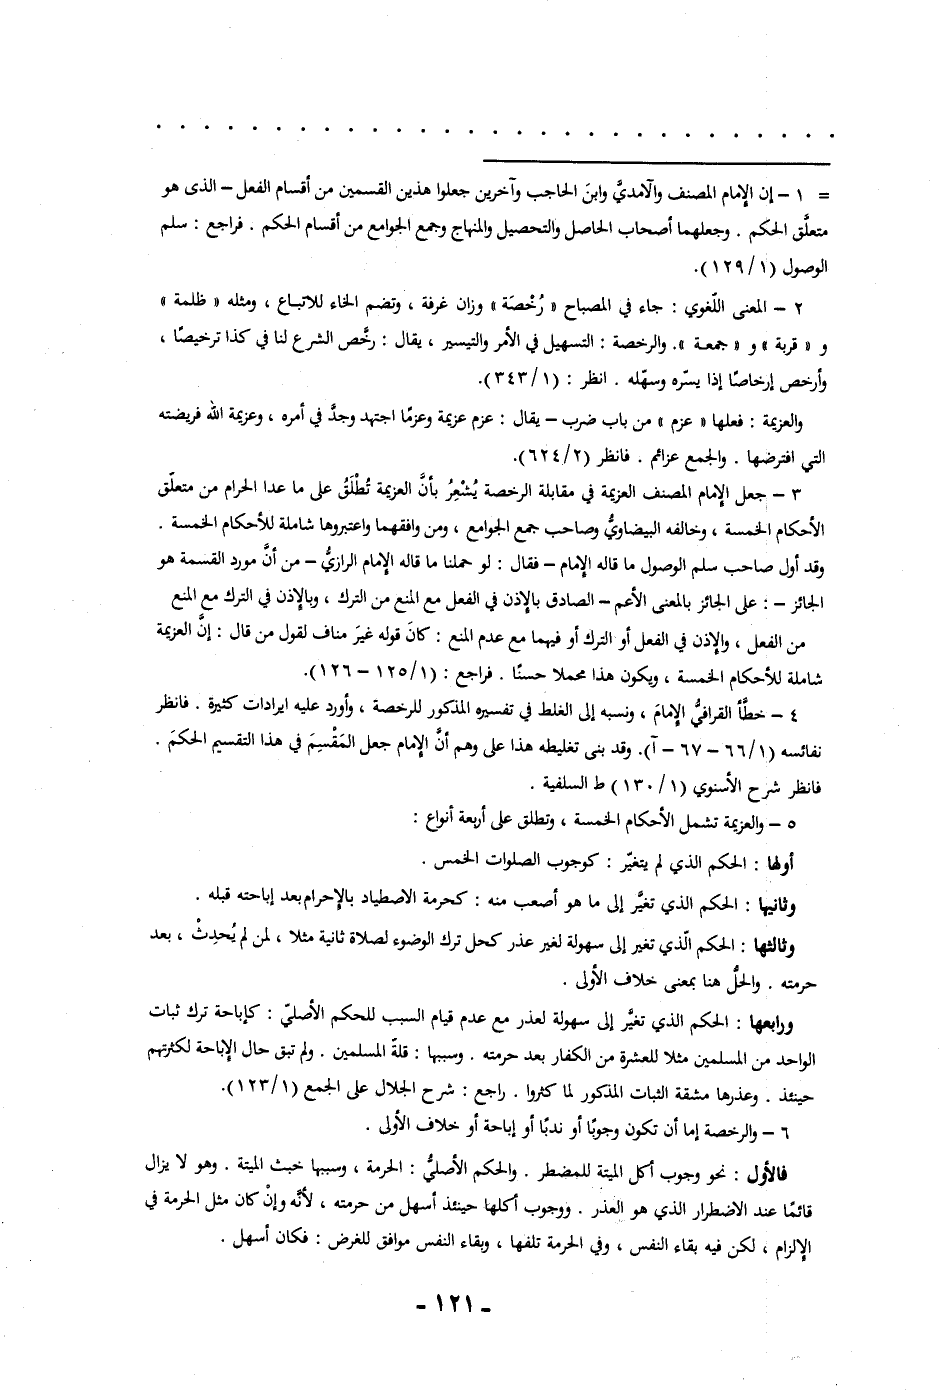 . . . . . . . . . . . . . . . . . . . . . . . . . . . . . .
= ١ – إن الإمام المصنف والآمديَّ وابنَ الحاجب وآخرين جعلوا هذين القسمين من أقسام الفعل – الذى هو
متعلَّق الحكم . وجعلهما أصحاب الحاصل والتحصيل والمنهاج وجمع الجوامع من أقسام الحكم . فراجع : سلم
الوصول (١/١٢٩).
٢ – المعنى اللّغوي : جاء في المصباح « رُخْصَة » وزان غرفة ، وتضم الخاء للاتباع ، ومثله « ظلمة »
و « قربة » و « جمعة ». والرخصة : التسهيل في الأمر والتيسير ، يقال : رخَّص الشرع لنا في كذا ترخيصًا ،
وأرخص إرخاصًا إذا يسّره وسهّله . انظر : (١/٣٤٣).
والعزيمة : فعلها « عزم » من باب ضرب – يقال : عزم عزيمة وعزمًا اجتهد وجدَّ في أمره ، وعزيمة الله فريضته
التي افترضها . والجمع عزائم . فانظر (٢/٦٢٤).
٣ – جعل الإمام المصنف العزيمة في مقابلة الرخصة يُشْعِرُ بأنَّ العزيمة تُطْلَقُ على ما عدا الحرام من متعلّق
الأحكام الخمسة ، وخالفه البيضاويُّ وصاحب جمع الجوامع ، ومن وافقهما واعتبروها شاملة للأحكام الخمسة .
وقد أول صاحب سلم الوصول ما قاله الإمام – فقال : لو حملنا ما قاله الإمام الرازيُّ – من أنَّ مورد القسمة هو
الجائز – : على الجائز بالمعنى الأعم – الصادق بالإذن في الفعل مع المنع من الترك ، وبالإذن في الترك مع المنع
من الفعل ، والإذن في الفعل أو الترك أو فيهما مع عدم المنع : كانَ قوله غيرَ مناف لقول من قال : إنَّ العزيمة
شاملة للأحكام الخمسة ، ويكون هذا محملا حسنًا . فراجع : (١/١٢٥ – ١٢٦).
٤ – خطَّأ القرافيُّ الإمامَ ، ونسبه إلى الغلط في تفسيره المذكور للرخصة ، وأورد عليه ايرادات كثيرة . فانظر
نفائسه (١/٦٦ – ٦٧ – آ). وقد بنى تغليطه هذا على وهم أنَّ الإمام جعل المَقْسِمَ في هذا التقسيم الحكمَ .
فانظر شرح الأسنوي (١/١٣٠) ط السلفية .
٥ – والعزيمة تشمل الأحكام الخمسة ، وتطلق على أربعة أنواع :
أولها : الحكم الذي لم يتغيّر : كوجوب الصلوات الخمس .
وثانيها : الحكم الذي تغيَّر إلى ما هو أصعب منه : كحرمة الاصطياد بالإحرام بعد إباحته قبله .
وثالثها : الحكم الّذي تغير إلى سهولة لغير عذر كحل ترك الوضوء لصلاة ثانية مثلا ، لمن لم يُحدِثْ ، بعد
حرمته . والحلُّ هنا بمعنى خلاف الأولى .
ورابعها : الحكم الذي تغيَّر إلى سهولة لعذر مع عدم قيام السبب للحكم الأصليّ : كإباحة ترك ثبات
الواحد من المسلمين مثلا للعشرة من الكفار بعد حرمته . وسببها : قلةّ المسلمين . ولم تبق حال الإباحة لكثرتهم
حينئذ . وعذرها مشقة الثبات المذكور لما كثروا . راجع : شرح الجلال على الجمع (١/١٢٣).
٦ – والرخصة إما أن تكون وجوبًا أو ندبًا أو إباحة أو خلاف الأولى .
فالأول : نحو وجوب أكل الميتة للمضطر . والحكم الأصليُّ : الحرمة ، وسببها خبث الميتة . وهو لا يزال
قائمًا عند الاضطرار الذي هو العذر . ووجوب أكلها حينئذ أسهل من حرمته ، لأنَّه وإنْ كان مثل الحرمة في
الإلزام ، لكن فيه بقاء النفس ، وفي الحرمة تلفها ، وبقاء النفس موافق للغرض : فكان أسهل .
– ١٢١ –